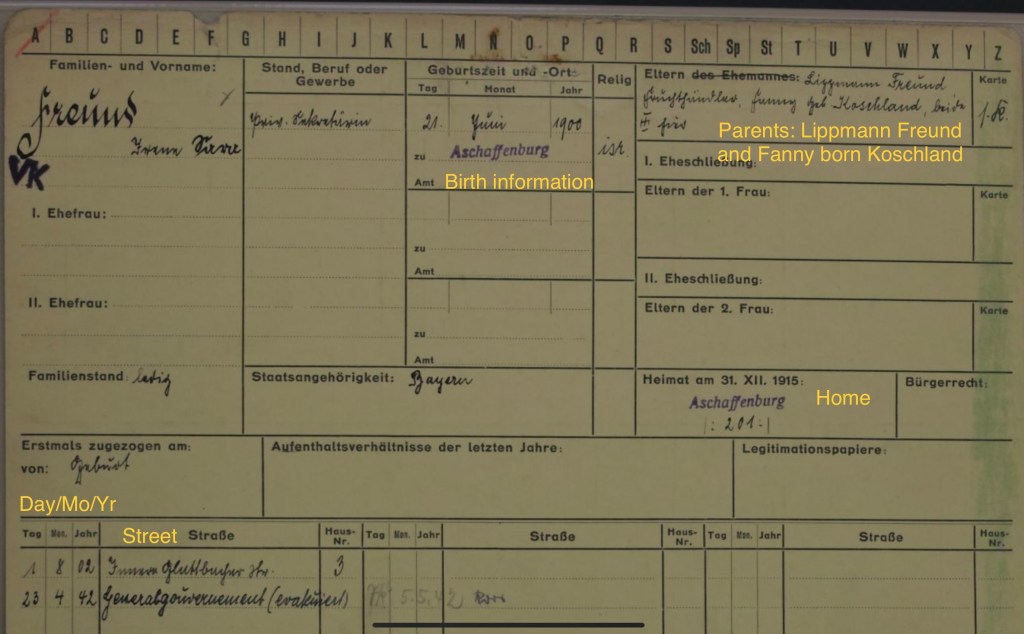 A B C D E F G H I J K L M N O P Q R S Sch Sp St T U V W X Y Z
Familien- und Vorname:
Stand, Beruf oder Gewerbe
Geburtszeit und -Ort:
Tag Monat Jahr
Relig
Eltern des Ehemannes: Lippmann Freund
Karte
Freund
Irene Sara
VK
Priv. Sekretärin
21. Juni 1900
zu Aschaffenburg
Amt
Birth information
isr.
Fruchthändler, Fanny geb Koschland, beide
für
Parents: Lippmann Freund
and Fanny born Koschland
I. Eheschließung:
Eltern der 1. Frau:
Karte
I. Ehefrau:
zu
Amt
II. Eheschließung:
II. Ehefrau:
Eltern der 2. Frau:
Karte
zu
Amt
Familienstand: ledig
Staatsangehörigkeit: Bayern
Heimat am 31. XII. 1915:
Bürgerrecht:
Aschaffenburg
Home
|: 201 :|
Erstmals zugezogen am:
von: Geburt
Aufenthaltsverhältnisse der letzten Jahre:
Legitimationspapiere:
Day/Mo/Yr
Tag Mon. Jahr Street Straße Haus-Nr. Tag Mon. Jahr Straße Haus-Nr. Tag Mon. Jahr Straße Haus-Nr.
1 8 02 Innere Glattbacher Str. 3
23 4 42 Generalgouvernement (evakuiert) 5.5.42